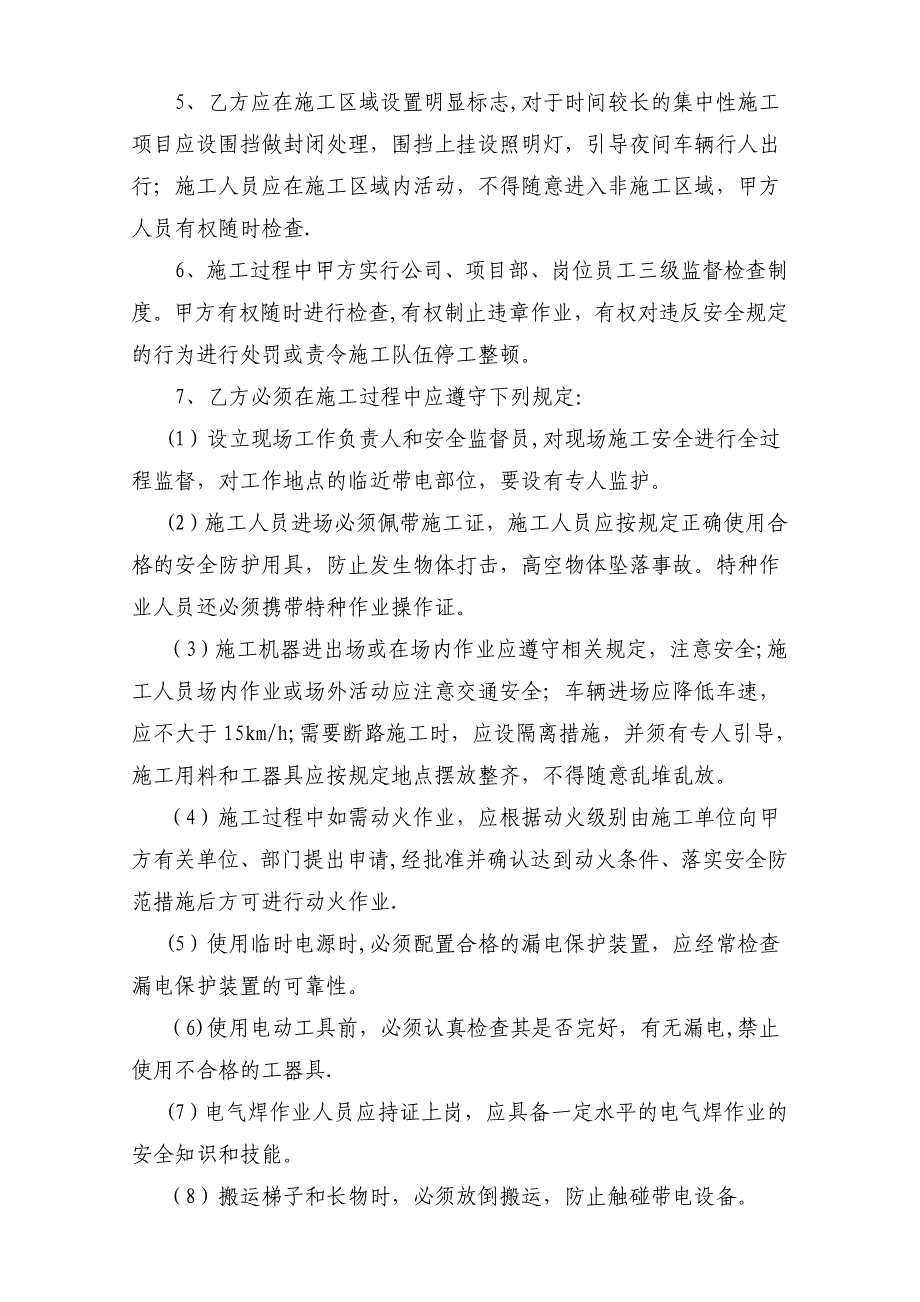 5、乙方应在施工区域设置明显标志,对于时间较长的集中性施工
项目应设围挡做封闭处理，围挡上挂设照明灯，引导夜间车辆行人出
行；施工人员应在施工区域内活动，不得随意进入非施工区域，甲方
人员有权随时检查.
6、施工过程中甲方实行公司、项目部、岗位员工三级监督检查制
度。甲方有权随时进行检查,有权制止违章作业，有权对违反安全规定
的行为进行处罚或责令施工队伍停工整顿。
7、乙方必须在施工过程中应遵守下列规定：
(1）设立现场工作负责人和安全监督员,对现场施工安全进行全过
程监督，对工作地点的临近带电部位，要设有专人监护。
(2）施工人员进场必须佩带施工证，施工人员应按规定正确使用合
格的安全防护用具，防止发生物体打击，高空物体坠落事故。特种作
业人员还必须携带特种作业操作证。
（3）施工机器进出场或在场内作业应遵守相关规定，注意安全;施
工人员场内作业或场外活动应注意交通安全；车辆进场应降低车速，
应不大于15km/h;需要断路施工时，应设隔离措施，并须有专人引导，
施工用料和工器具应按规定地点摆放整齐，不得随意乱堆乱放。
（4）施工过程中如需动火作业，应根据动火级别由施工单位向甲
方有关单位、部门提出申请,经批准并确认达到动火条件、落实安全防
范措施后方可进行动火作业.
(5）使用临时电源时,必须配置合格的漏电保护装置，应经常检查
漏电保护装置的可靠性。
（6)使用电动工具前，必须认真检查其是否完好，有无漏电,禁止
使用不合格的工器具.
(7）电气焊作业人员应持证上岗，应具备一定水平的电气焊作业的
安全知识和技能。
（8）搬运梯子和长物时，必须放倒搬运，防止触碰带电设备。